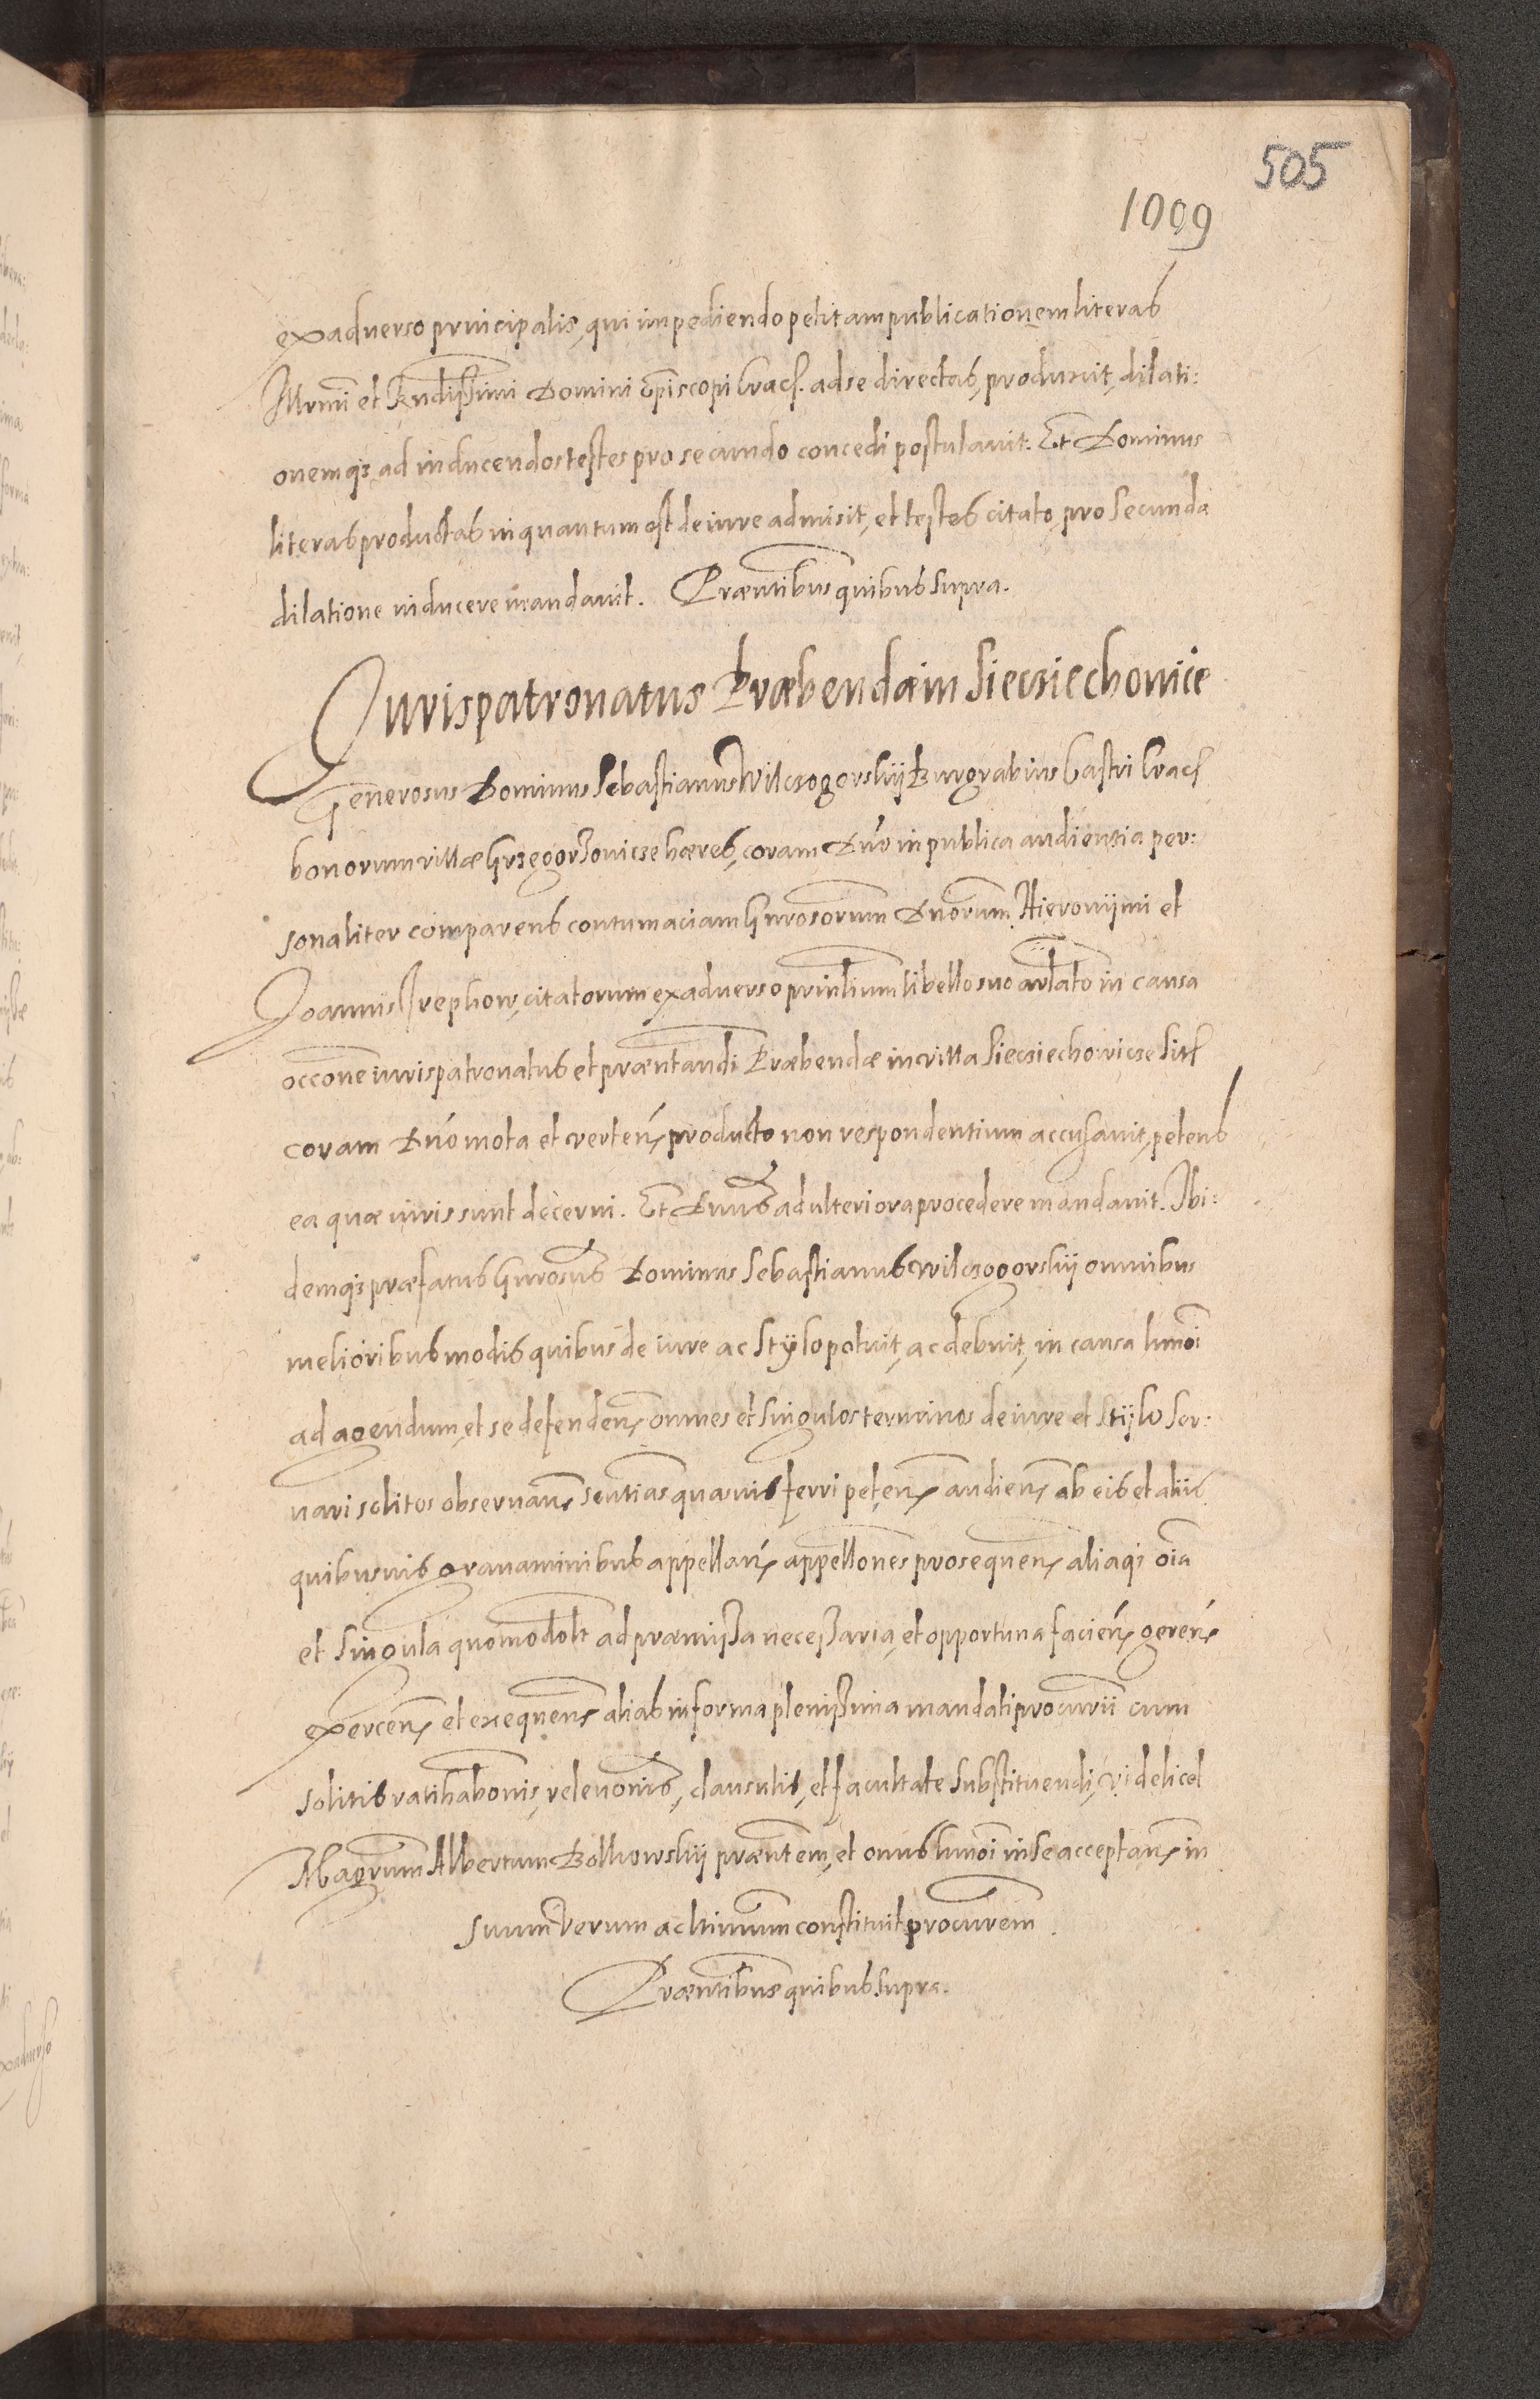 505
1009
ex adverso principalis, qui impediendo petitam publicationem literas
Illrmi et Rndissimi Domini Episcopi Crac. ad se directas, produxit, dilati:
onemq; ad inducendos testes pro secundo concedi postulavit. Et Dominus
literas productas in quantum est de iure admisit, et testes citato, pro secunda
dilatione inducere mandavit. Præntibus quibus supra.
Jurispatronatus Præbendæ in Siecziechowice
Generosus Dominus Sebastianus Wilczogorskij Burgrabius Castri Crac
bonorum villæ Grzegorzowicze hæres, coram Dno in publica audientia per:
sonaliter comparens contumaciam Gnrosorum Dnorum Hieronijmi et
Joannis citatorum ex adverso prinlium libello suo arlato in causa
occone iurispatronatus et præntandi Præbendæ in villa Siecziechowicze Sit
coram Dno mota et verten, producto non respondentium accusavit, petens
ea quæ iuris sunt decerni. Et Dnus ad ulteriora procedere mandavit. Ibi:
demq; præfatus Gnrosus Dominus Sebastianus Wilczogorskij omnibus
melioribus modis quibus de iure ac Stylo potuit, ac debuit, in causa hmoi
ad agendum, et se defenden, omnes et singulos terminos de iure et Stijlo ser:
vari solitos observan, sentias quasvis ferri peten, audien, ab eis et aliis
quibusvis gravaminibus appellan, appellones prosequen, aliaq; oia
et singula quomodolt ad præmissa necessaria, et opportuna facien, geren,
exercen, et exequen, alias in forma plenissima mandati procurii cum
solitis ratihabonis, relevonis, clausulis, et facultate substituendi, videlicet
Magrum Albertum Bolkowskij præntem, et onus hmoi in se acceptan, in
suum verum ac ltimum constituit procurem
Præntibus quibus supra.